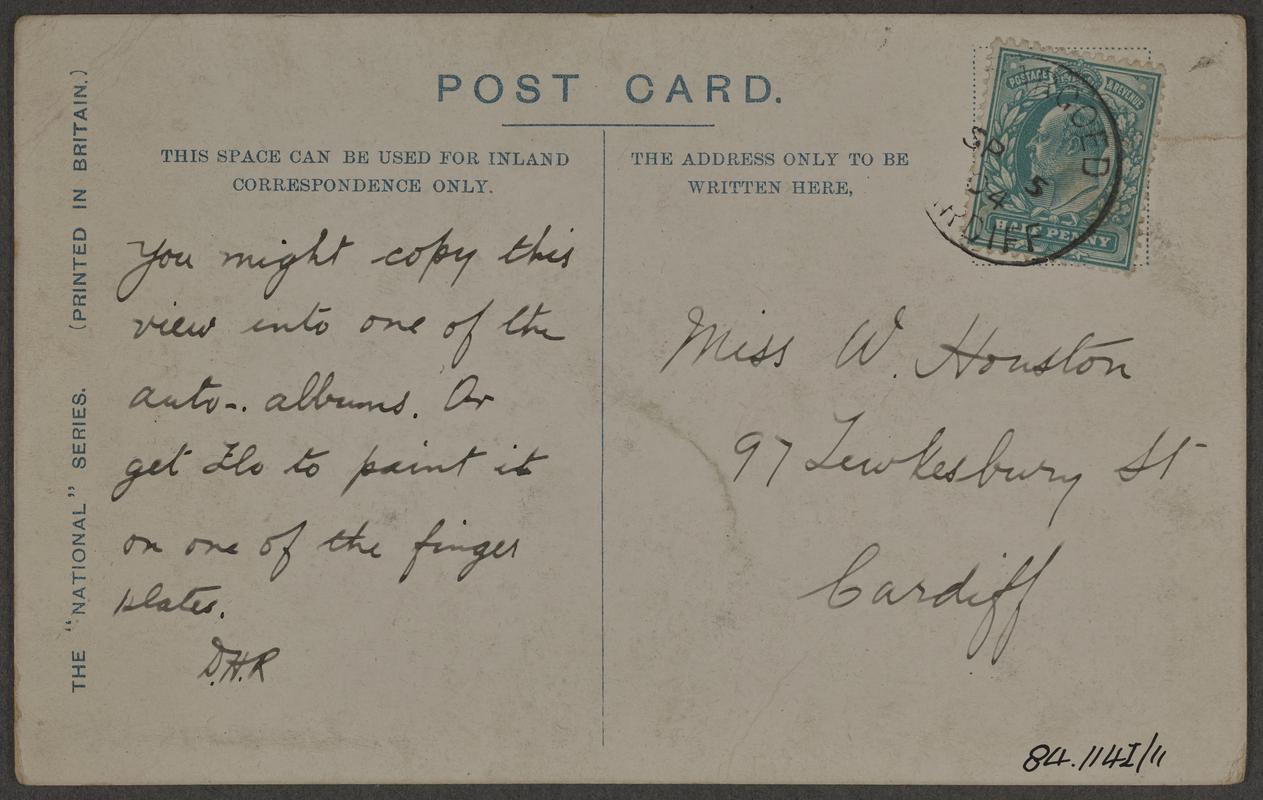 POST CARD.
THIS SPACE CAN BE USED FOR INLAND
CORRESPONDENCE ONLY.
You might copy this
view into one of the
auto-. albums. Or
get Flo to paint it
on one of the finger
plates.
D.H.R
THE ADDRESS ONLY TO BE
WRITTEN HERE,
Miss W. Houston
97 Tewkesbury St
Cardiff
POSTAGE & REVENUE
HALF PENNY
GOED
SP 5
04
RDIFF
THE "NATIONAL" SERIES. (PRINTED IN BRITAIN.)
84.114I/11